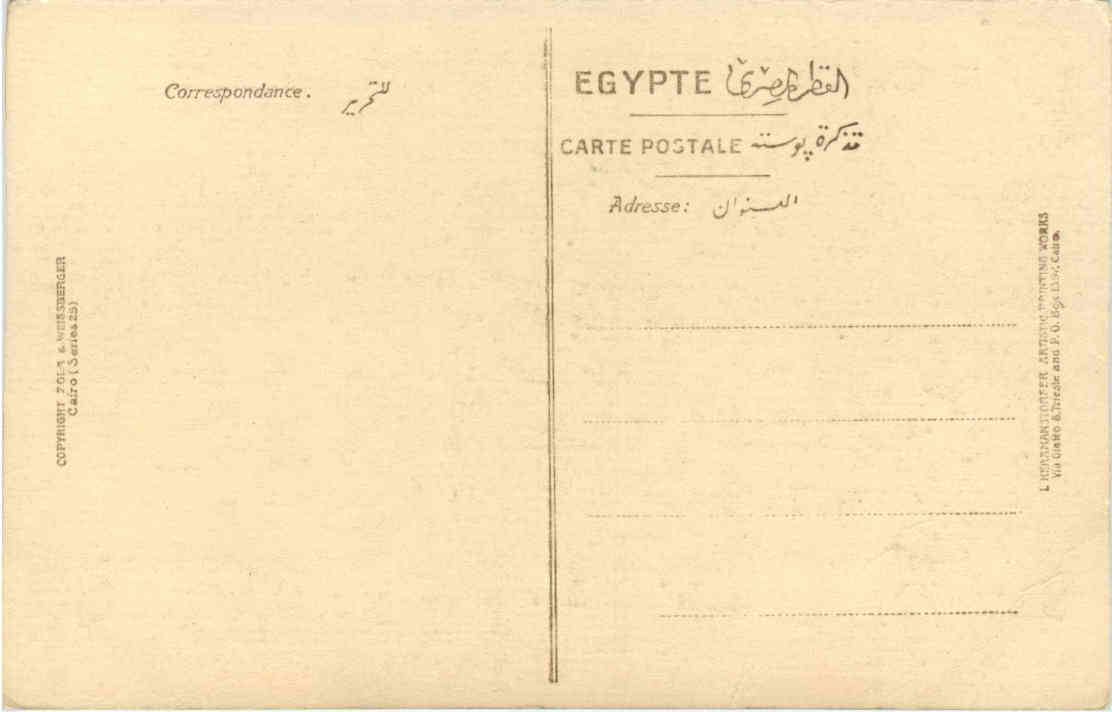 Correspondance. للتحرير
EGYPTE القطر المصرى
CARTE POSTALE تذكرة پوسته
Adresse: العنوان
COPYRIGHT & WEISSBERGER
Cairo (Series 25)
L HERRMANSTORFER ARTISTIC PRINTING WORKS
Via Giotto 8. Trieste and P.O. Box Cairo.